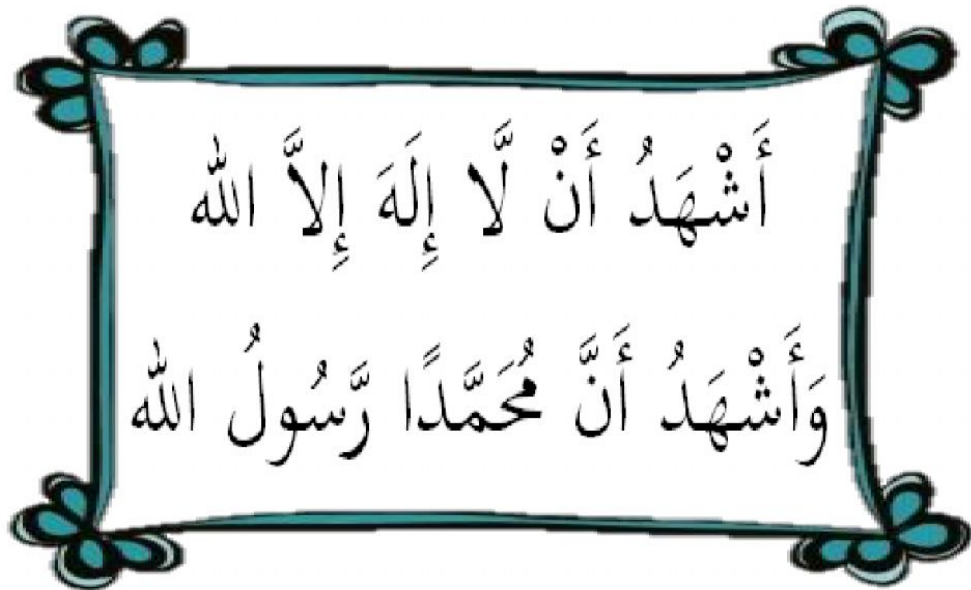 أَشْهَدُ أَنْ لَّا إِلَهَ إِلاَّ الله
وَأَشْهَدُ أَنَّ مُحَمَّدًا رَّسُولُ الله